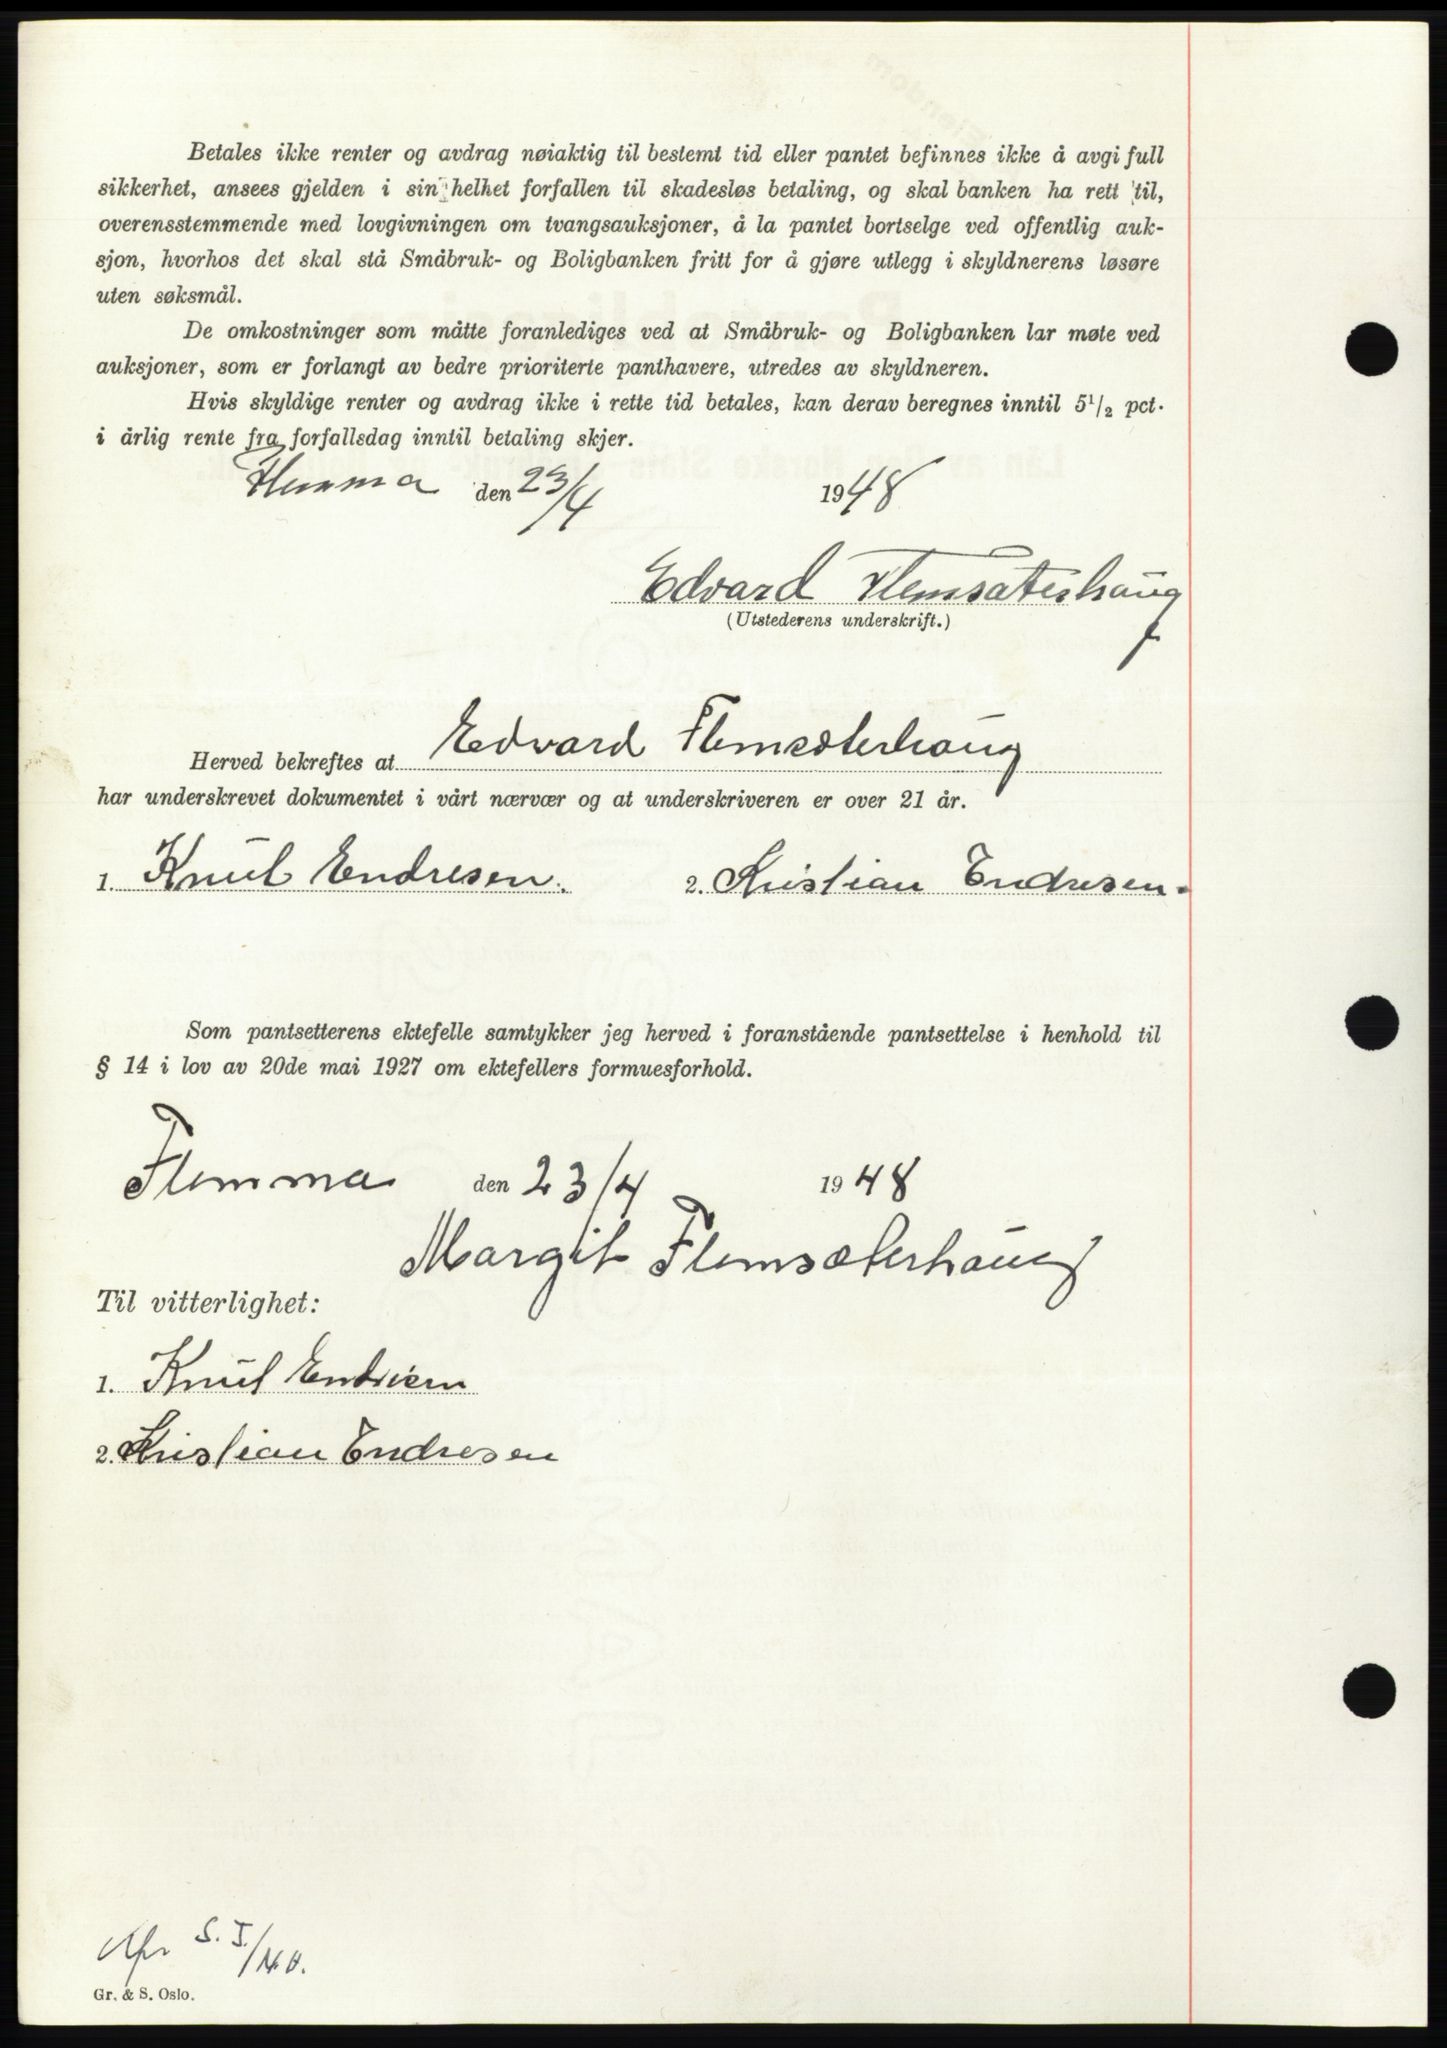 Betales ikke renter og avdrag nøiaktig til bestemt tid eller pantet befinnes ikke å avgi full
sikkerhet, ansees gjelden i sin helhet forfallen til skadesløs betaling, og skal banken ha rett til,
overensstemmende med lovgivningen om tvangsauksjoner, å la pantet bortselge ved offentlig auk-
sjon, hvorhos det skal stå Småbruk- og Boligbanken fritt for å gjøre utlegg i skyldnerens løsøre
uten søksmål.
De omkostninger som måtte foranlediges ved at Småbruk- og Boligbanken lar møte ved
auksjoner, som er forlangt av bedre prioriterte panthavere, utredes av skyldneren.
Hvis skyldige renter og avdrag ikke i rette tid betales, kan derav beregnes inntil 5 1/2 pct.
i årlig rente fra forfallsdag inntil betaling skjer.
Flemma den 23/4 1948
Edvard Flemsæterhaug
(Utstederens underskrift.)
Herved bekreftes at Edvard Flemsæterhaug
har underskrevet dokumentet i vårt nærvær og at underskriveren er over 21 år.
1. Knut Endresen. 2. Kristian Endresen.
Som pantsetterens ektefelle samtykker jeg herved i foranstående pantsettelse i henhold til
§ 14 i lov av 20de mai 1927 om ektefellers formuesforhold.
Flemma den 23/4 1948
Margit Flemsæterhaug
Til vitterlighet:
1. Knut Endresen
2. Kristian Endresen
Gr. & S. Oslo.